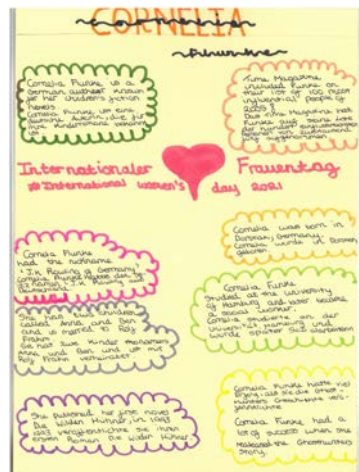 CORNELIA
Funke
Cornelia Funke is a
German author known
for her children's fiction
novels
Cornelia Funke ist eine
deutsche Autorin, die für
ihre Kinderromane bekannt
ist
Time Magazine
included Funke on
their list of 100 most
influential people of
2005!
Das Time Magazine hat
Funke auf seine Liste
der hundert
Personen von
Internationaler Frauentag
#International women's day 2021
Cornelia Funke
had the nickname
"J.K Rowling of Germany"
Cornelia Funke
"J.K Rowling aus
Deutschland
Cornelia was born in
Dorsten, Germany.
Cornelia wurde in Dorsten
geboren
She has two children
called Anna and Ben
and is married to Rolf
Frahm.
Sie hat zwei Kinder
Anna und Ben und ist mit
Rolf Frahm verheiratet
Cornelia Funke
studied at the University
of Hamburg and later became
a social worker.
Cornelia studierte an der
Universität Hamburg und
wurde später
She published her first novel
Die Wilden Hühner, in 1993
1993 veröffentlichte sie ihren
ersten Roman Die Wilden Hühner.
Cornelia Funke hatte viel
Erfolg, als sie die
Geschichte
Cornelia Funke had a
lot of success when she
released the Ghosthunters
Story.